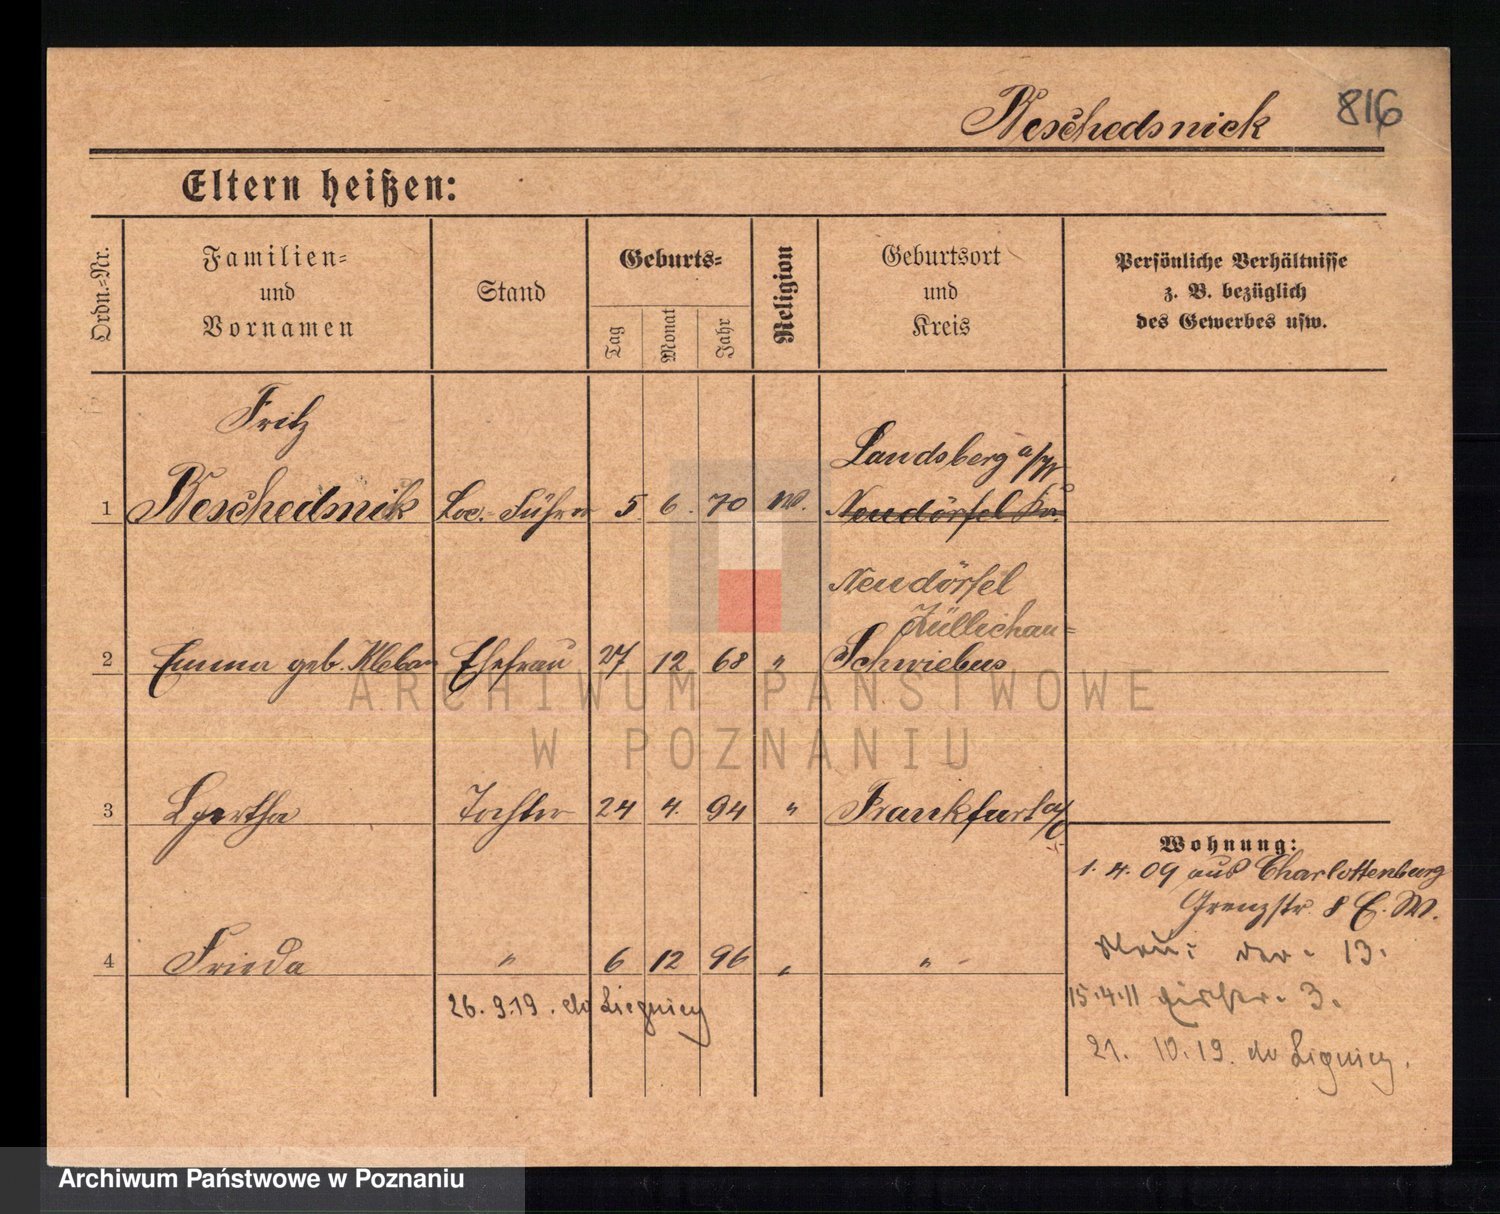 Reschedsnick 816
Eltern heißen:
Ordn.-Nr.
Familien-
und
Vornamen
Stand
Geburts-
Tag
Monat
Jahr
Religion
Geburtsort
und
Kreis
Persönliche Verhältnisse
z. B. bezüglich
des Gewerbes usw.
Fritz
Landsberg a/W
1 Reschedsnik Loc.-Führer 5 6. 70 Neudörfel Kr.
Neudörfel
Züllichau-
2 Emma geb. Ehefrau 27 12 68 " Schwiebus
3 Tochter 24 4. 94 " Frankfurt a/O
Wohnung:
1. 4. 09 aus Charlottenburg
Grenzstr. 8 E. W.
4 Frieda " 6 12 96 " " -
13.
15.4.11 3.
26. 9.19. do Liegnicy
21. 10.19. do Lignicy.
ARCHIWUM PAŃSTWOWE
W POZNANIU
Archiwum Państwowe w Poznaniu